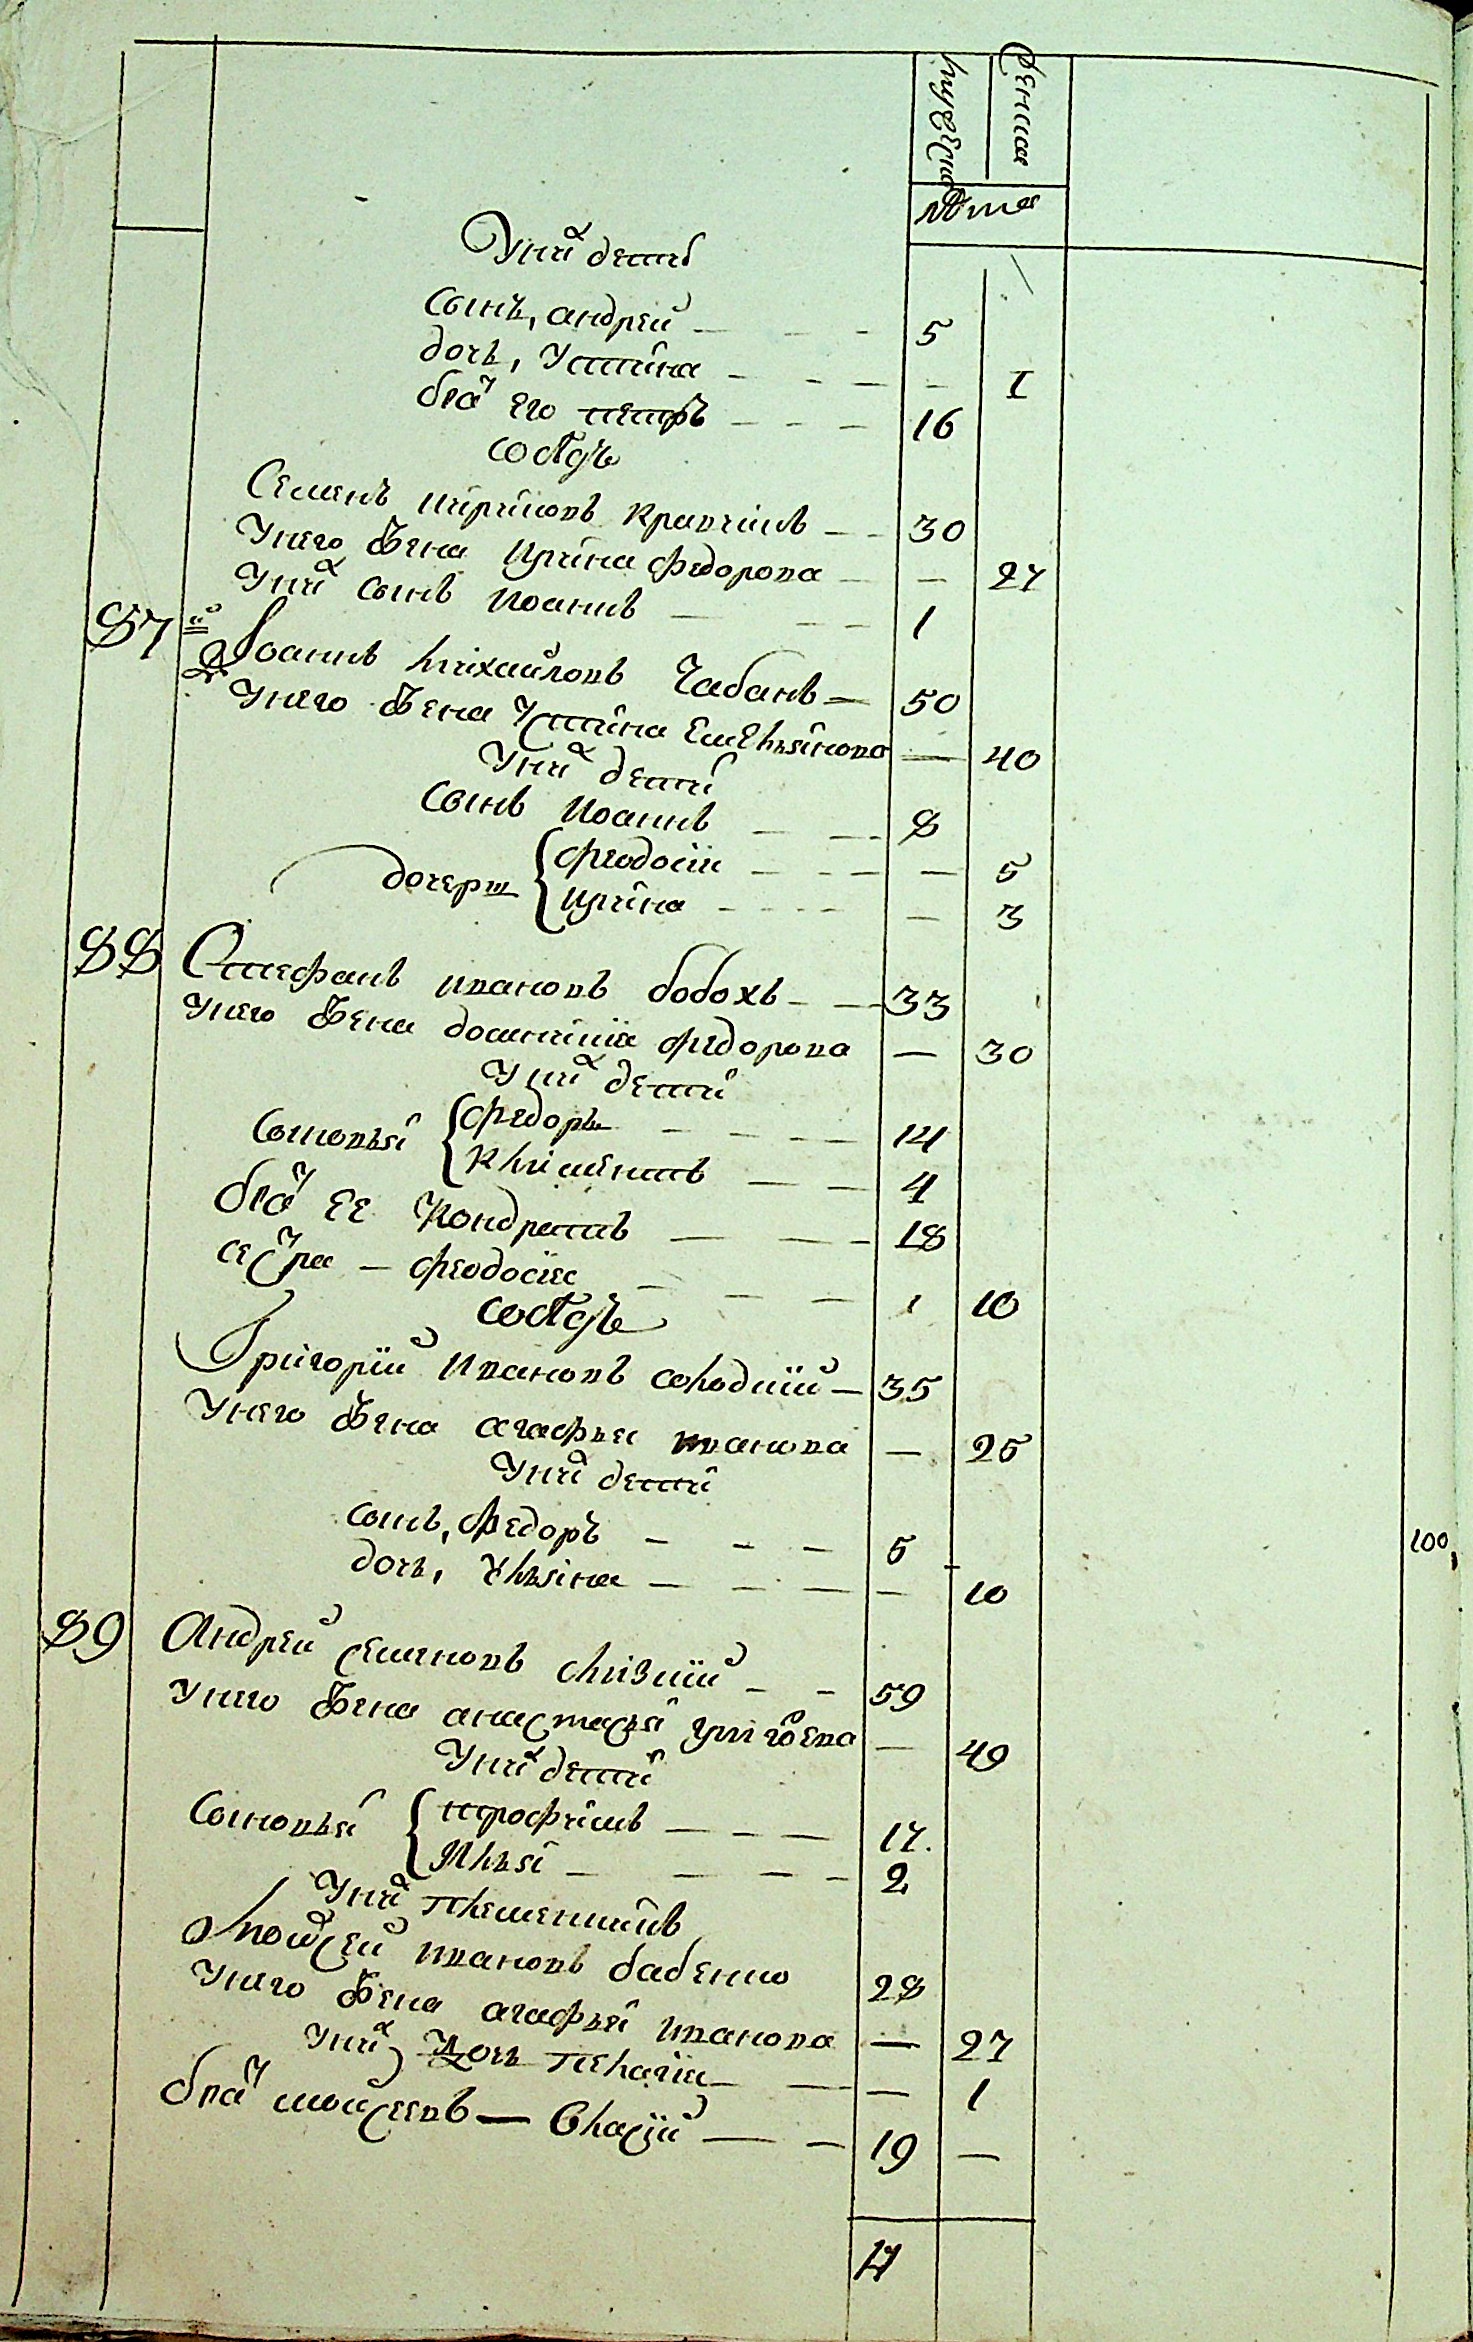 мужеска
женска
лѣта
У них дети
Сынъ, андрей — — — 5
дочь, Устина — — — — 1
бра его петръ — — — 16
сосѣдъ
Семенъ Кравчинъ — — 30
У него жена Ирина федорова — — 27
У них сынъ Иоаннъ — — — 1
87 й Иоаннъ Михайловъ Чабанъ — 50
У него жена Устина Емельянова — 40
У них дети
Сынъ Иоаннъ — — 8
дочери { феодосия — — — — 5
Ирина — — — — — 3
88 Стефанъ ивановъ бобохъ — — 33
У него жена домникия федорова — 30
У них дети
Сыновья { федоръ — — — — 14
Климентъ — — 4
бра ее Кондратъ — — — 18
сестра — феодосия — — — 10
сосѣдъ
Григорий Ивановъ солодкий — 35
У него жена агафья иванова — 25
У них дети
сынъ, Федоръ — — — 5
дочь, Ульяна — — — — 10
100
89 Андрей семеновъ слизкий — — 59
У него жена анастасья — 49
У них дети
Сыновья { трофимъ — — — 17.
Илья — — — — 2
У них племенникъ
Мойсей ивановъ бабенко 28
У него жена агафья иванова — 27
У них дочь пелагия — — — 1
бра мойсеевъ — Власий — — 19 —